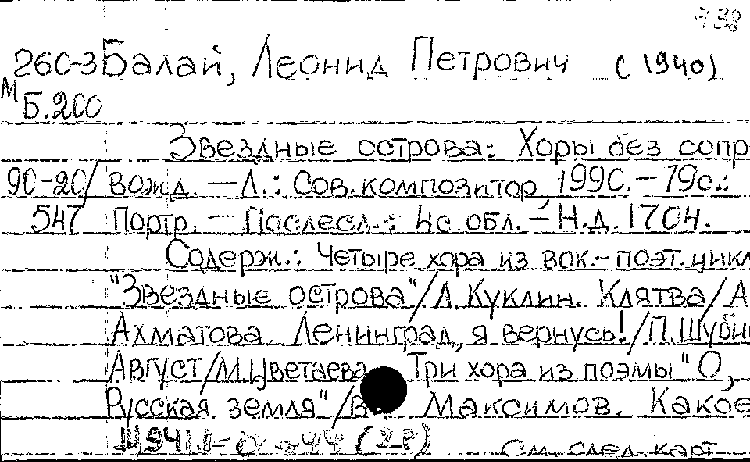 438
260-3 Балай, Леонид Петрович (1940)
М
Б.200
Звездные острова: Хоры без сопр
90-20/ вожд. — Л.: Сов. композитор, 1990. — 79 с.:
547 Портр. — Послесл.: на обл. — Н.д. 1704.
Содерж.: Четыре хора из вок.-поэт. цикл
"Звездные острова"/Л. Куклин. Клятва/А
Ахматова. Ленинград, я вернусь!/П. Шуби
Август/М. Цветаева. Три хора из поэмы "О,
Русская земля"/В Максимов. Какое
См. след. карт